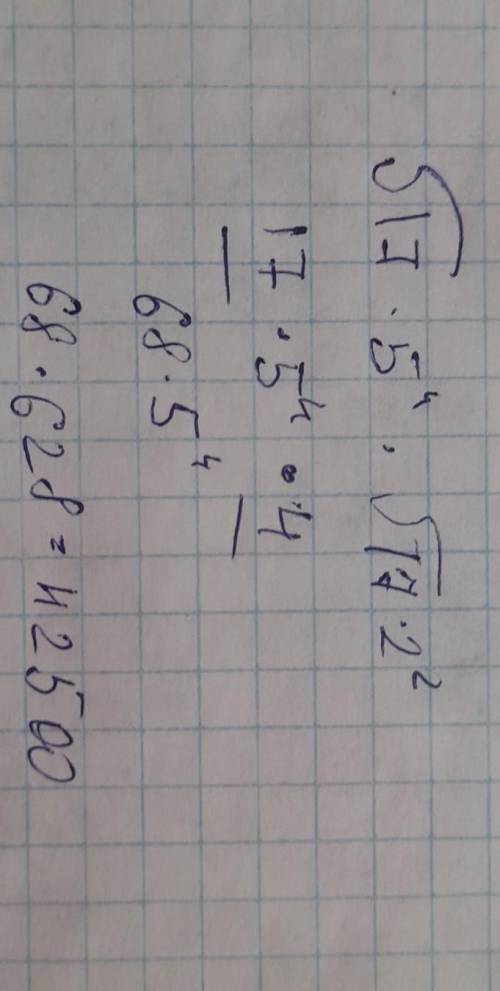 √17 · 5⁴ · √17 · 2²
17 · 5⁴ · 4
68 · 5⁴
68 · 628 = 42500